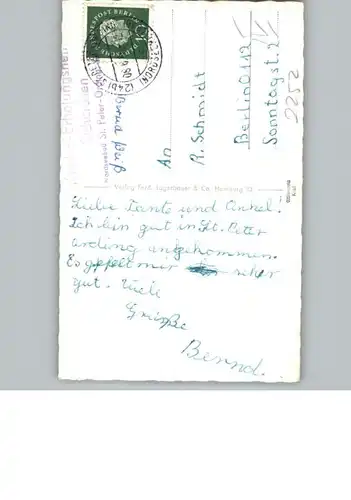 DEUTSCHE BUNDESPOST BERLIN
10
Erholungsheim
Nordseebad St. Peter-Ording
An
R. Schmidt
Berlin 0112
Sonntagstr. 2
2252
Verlag Ferd. Lagerbauer & Co. Hamburg
Liebe Tante und Onkel!
Ich bin gut in St. Peter
ording angekommen.
Es gefelt mir sehr
gut. Viele
Grüße
Bernd.